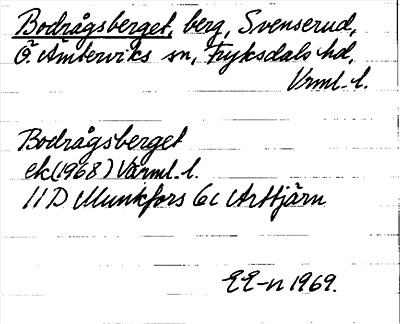 Bodrågsberget, berg, Svenserud,
Ö. Ämterviks sn, Fryksdals hd,
Vrml. l.
Bodrågsberget
ek (1968) Värml. l.
11 D Munkfors 6c Arttjärn
EE-n 1969.